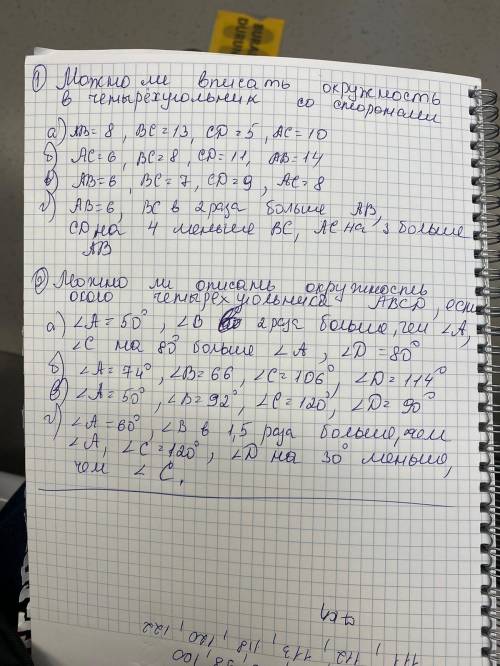 ① Можно ли вписать окружность
в четырёхугольник со сторонами
а) AB = 8, BC = 13, CD = 5, AC = 10
б) AC = 6, BC = 8, CD = 11, AB = 14
в) AB = 6, BC = 7, CD = 9, AC = 8
г) AB = 6, BC в 2 раза больше AB,
CD на 4 меньше BC, AC на 3 больше
AB
② Можно ли описать окружность
около четырёхугольника ABCD, если
а) ∠A = 50°, ∠B 2 раза больше, чем ∠A,
∠C на 80° больше ∠A, ∠D = 80°
б) ∠A = 74°, ∠B = 66, ∠C = 106°, ∠D = 114°
в) ∠A = 50°, ∠B = 92°, ∠C = 120°, ∠D = 90°
г) ∠A = 60°, ∠B в 1,5 раза больше, чем
∠A, ∠C = 120°, ∠D на 30° меньше,
чем ∠C.
111, 112, 113, 118, 120, 122
100